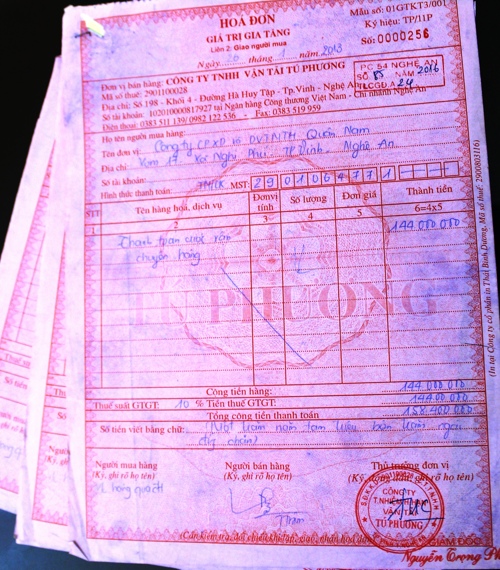 HOÁ ĐƠN
GIÁ TRỊ GIA TĂNG
Liên 2: Giao người mua
Ngày 26 tháng 1 năm 2013
Mẫu số: 01GTKT3/001
Ký hiệu: TP/11P
Số: 0000256
PC 54 NGHỆ AN
SỐ 85 NĂM 2016
TLCGĐ A 24
Đơn vị bán hàng: CÔNG TY TNHH VẬN TẢI TÚ PHƯƠNG
Mã số thuế: 2901100028
Địa chỉ: Số 198 - Khối 4 - Đường Hà Huy Tập - Tp.Vinh - Nghệ An
Số tài khoản: 102010000817927 tại Ngân hàng Công thương Việt Nam - Chi nhánh Nghệ An
Điện thoại: 0383 511 139/ 0982 122 536 - Fax: 0383
Họ tên người mua hàng:
Tên đơn vị: Công ty CPXD và DVTNTH Quân Nam
Địa chỉ: Xóm 17 Xã Nghi Phú TP Vinh, Nghệ An
Số tài khoản:
Hình thức thanh toán: TM/CK MST: 2901064771
STT Tên hàng hoá, dịch vụ Đơn vị tính Số lượng Đơn giá Thành tiền
1 2 3 4 5 6=4x5
Thanh toán cước vận 144.000.000
chuyển hàng
TÚ PHƯƠNG
Cộng tiền hàng: 144.000.000
Thuế suất GTGT: 10 % Tiền thuế GTGT: 14.400.000
Tổng cộng tiền thanh toán 158.400.000
Số tiền viết bằng chữ: Một trăm năm tám triệu bốn trăm ngàn
đồng chẵn
Người mua hàng Người bán hàng Thủ trưởng đơn vị
(Ký, ghi rõ họ tên) (Ký, ghi rõ họ tên) (Ký, đóng dấu, ghi rõ họ tên)
CÔNG TY
T.NHIỆM H.HẠN
VẬN TẢI
TÚ PHƯƠNG
GIÁM ĐỐC
Nguyễn Trọng
(Cần kiểm tra, đối chiếu khi lập, giao, nhận hoá đơn)
(In tại Công ty cổ phần in Thái Bình Dương, Mã số thuế: 2900803116)